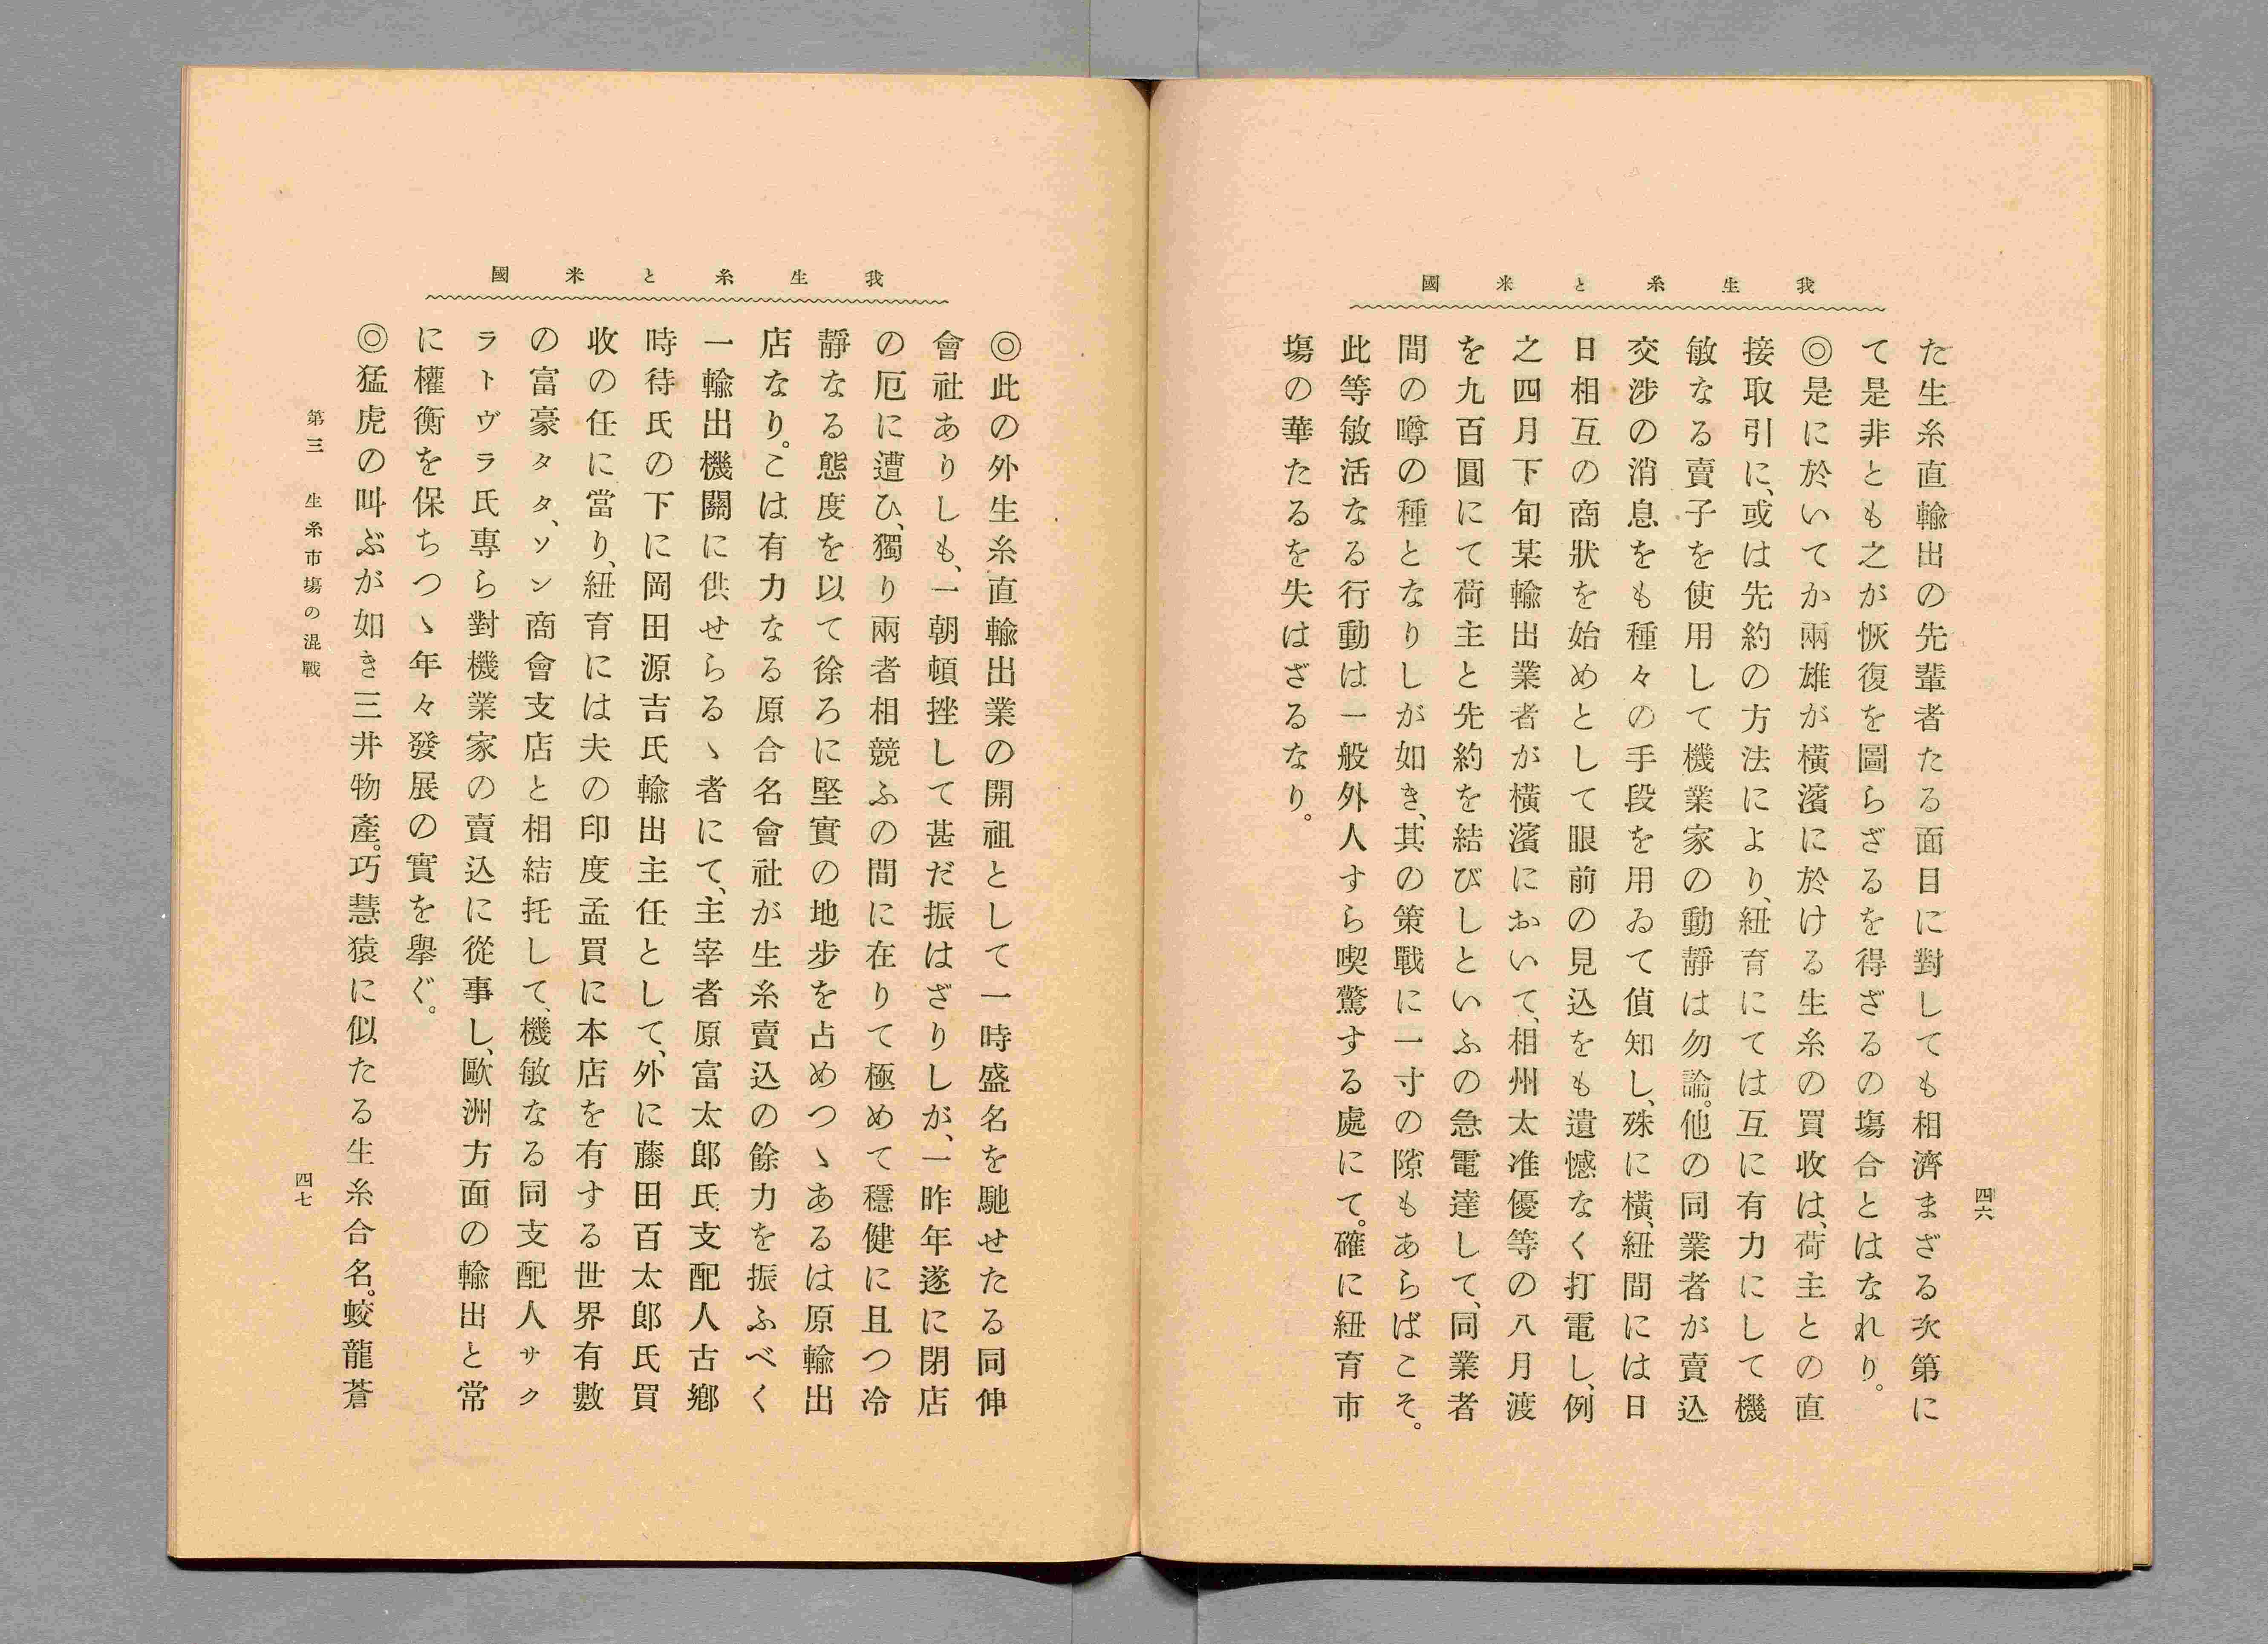 我生糸と米國
た生糸直輸出の先輩者たる面目に對しても相濟まざる次第に
て是非とも之が恢復を圖らざるを得ざるの塲合とはなれり。
◎是に於いてか兩雄が横濱に於ける生糸の買收は、荷主との直
接取引に、或は先約の方法により、紐育にては互に有力にして機
敏なる賣子を使用して機業家の動靜は勿論。他の同業者が賣込
交渉の消息をも種々の手段を用ゐて偵知し、殊に横、紐間には日
日相互の商狀を始めとして眼前の見込をも遺憾なく打電し、例
之四月下旬某輸出業者が横濱において、相州太准優等の八月渡
を九百圓にて荷主と先約を結びしといふの急電達して、同業者
間の噂の種となりしが如き、其の策戰に一寸の隙もあらばこそ。
此等敏活なる行動は一般外人すら喫驚する處にて。確に紐育市
塲の華たるを失はざるなり。
四六
我生糸と米國
◎此の外生糸直輸出業の開祖として一時盛名を馳せたる同伸
會社ありしも、一朝頓挫して甚だ振はざりしが、一昨年遂に閉店
の厄に遭ひ、獨り兩者相競ふの間に在りて極めて穩健に且つ冷
靜なる態度を以て徐ろに堅實の地步を占めつゝあるは原輸出
店なり。こは有力なる原合名會社が生糸賣込の餘力を振ふべく
一輸出機關に供せらるゝ者にて、主宰者原富太郎氏支配人古鄉
時待氏の下に岡田源吉氏輸出主任として、外に藤田百太郎氏買
收の任に當り、紐育には夫の印度孟買に本店を有する世界有數
の富豪タタ、ソン商會支店と相結托して、機敏なる同支配人サク
ラトヴラ氏專ら對機業家の賣込に從事し、歐洲方面の輸出と常
に權衡を保ちつゝ年々發展の實を擧ぐ。
◎猛虎の叫ぶが如き三井物產。巧慧猿に似たる生糸合名。蛟龍蒼
第三 生糸市塲の混戰
四七